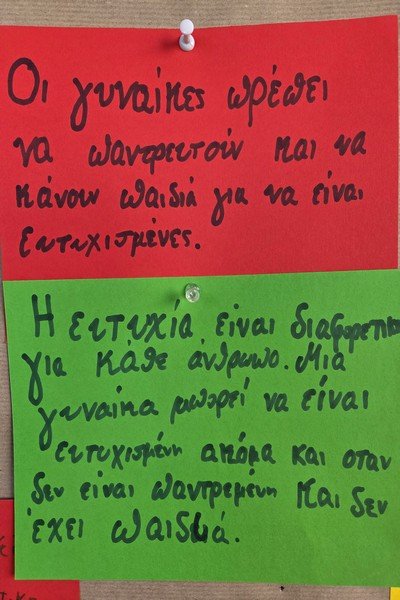 Οι γυναίκες πρέπει
να παντρευτούν και να
κάνουν παιδιά για να είναι
ευτυχισμένες.
Η ευτυχία είναι διαφορετική
για κάθε άνθρωπο. Μια
γυναίκα μπορεί να είναι
ευτυχισμένη ακόμα και οταν
δεν είναι παντρεμένη και δεν
έχει παιδιά.